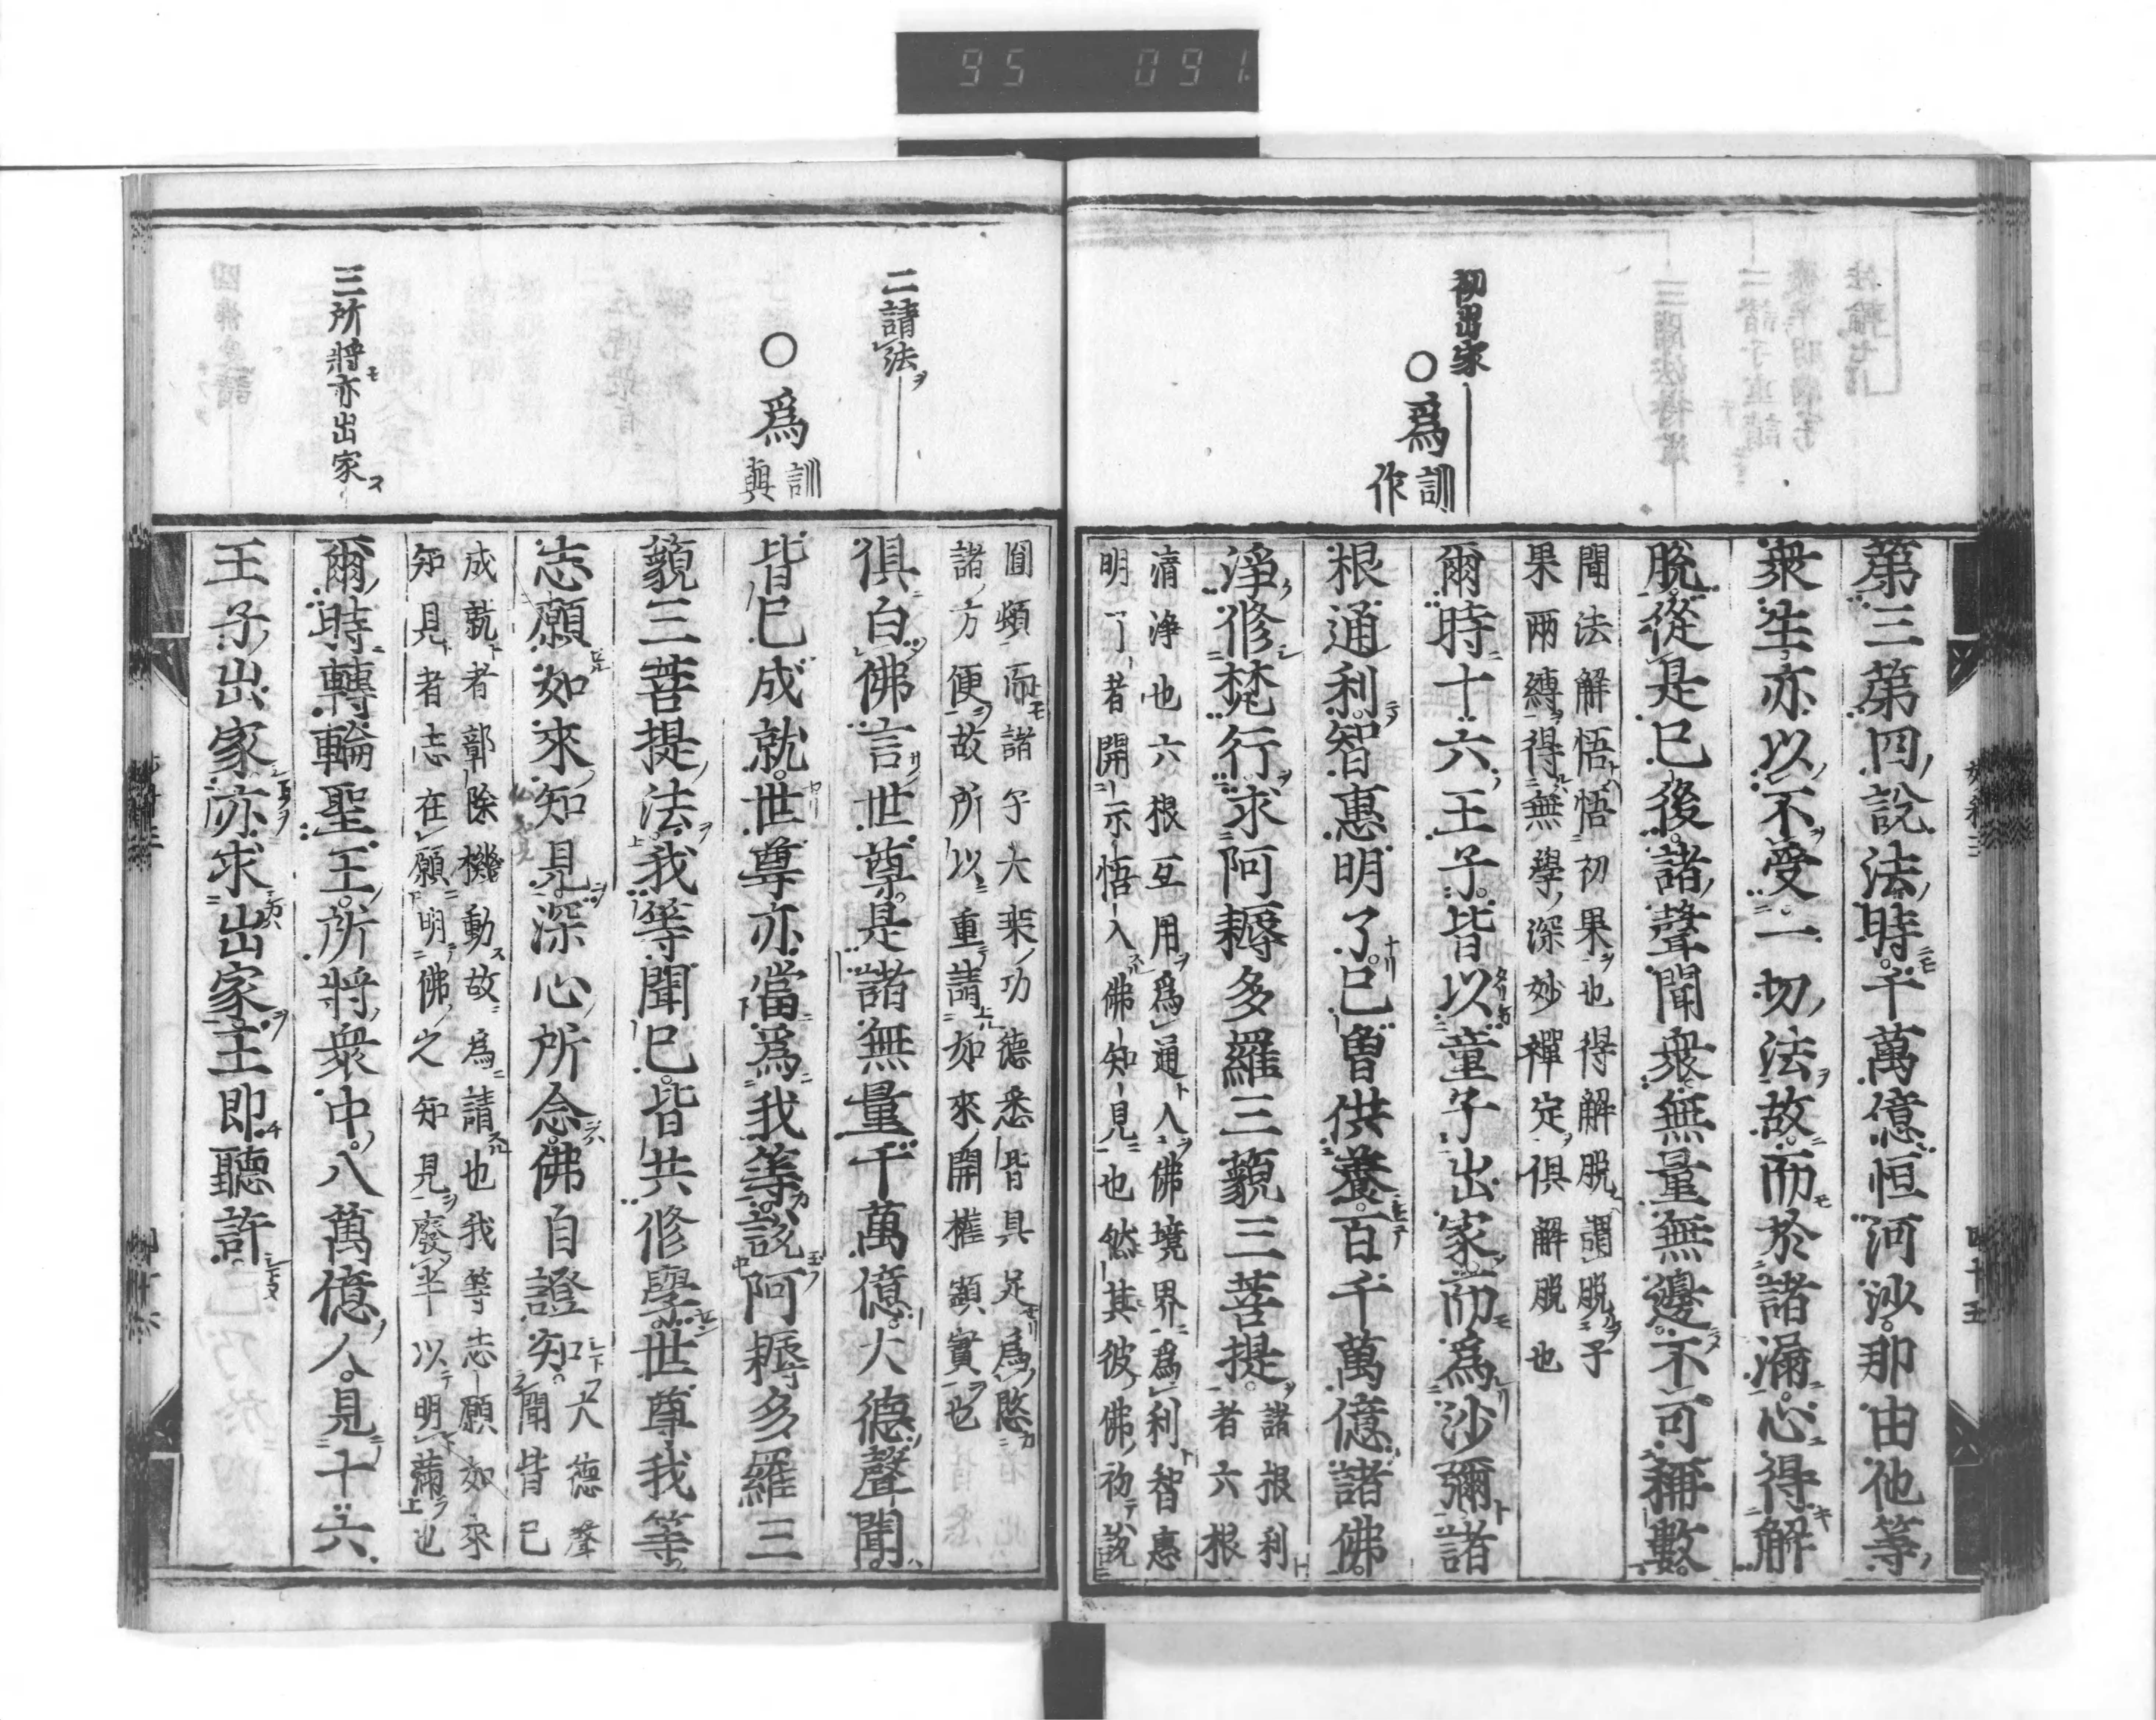 95 091
初出家
○爲 訓作
第三第四説法時千萬億恒河沙那由他等
衆生亦以不受一切法故而於諸漏心得解
脱從是已後諸聲聞衆無量無邊不可稱數
聞法解悟悟初果也得解脱謂脱子
果兩縛得無學深妙禪定俱解脱也
爾時十六王子皆以童子出家而爲沙彌諸
根通利智惠明了已曾供養百千萬億諸佛
淨修梵行求阿耨多羅三藐三菩提
諸根利
者六根
清淨也六根互用爲通入佛境界爲利智惠
明了者開示悟入佛知見也然其彼佛初説
二請法
○爲 訓與
三所將亦出家
圓頻而諸子大乘功德悉皆具足爲愍
諸方便故所以重請如來開權顯實也
俱白佛言世尊是諸無量千萬億大德聲聞
皆已成就世尊亦當爲我等説阿耨多羅三
藐三菩提法我等聞已皆共修學世尊我等
志願如來知見深心所念佛自證知
大德聲
聞皆已
成就者鄣除機動故爲請也我等志願如來
知見者志在願明佛之知見廢半以明滿也
爾時轉輪聖王所將衆中八萬億人見十六
王子出家亦求出家王即聽許